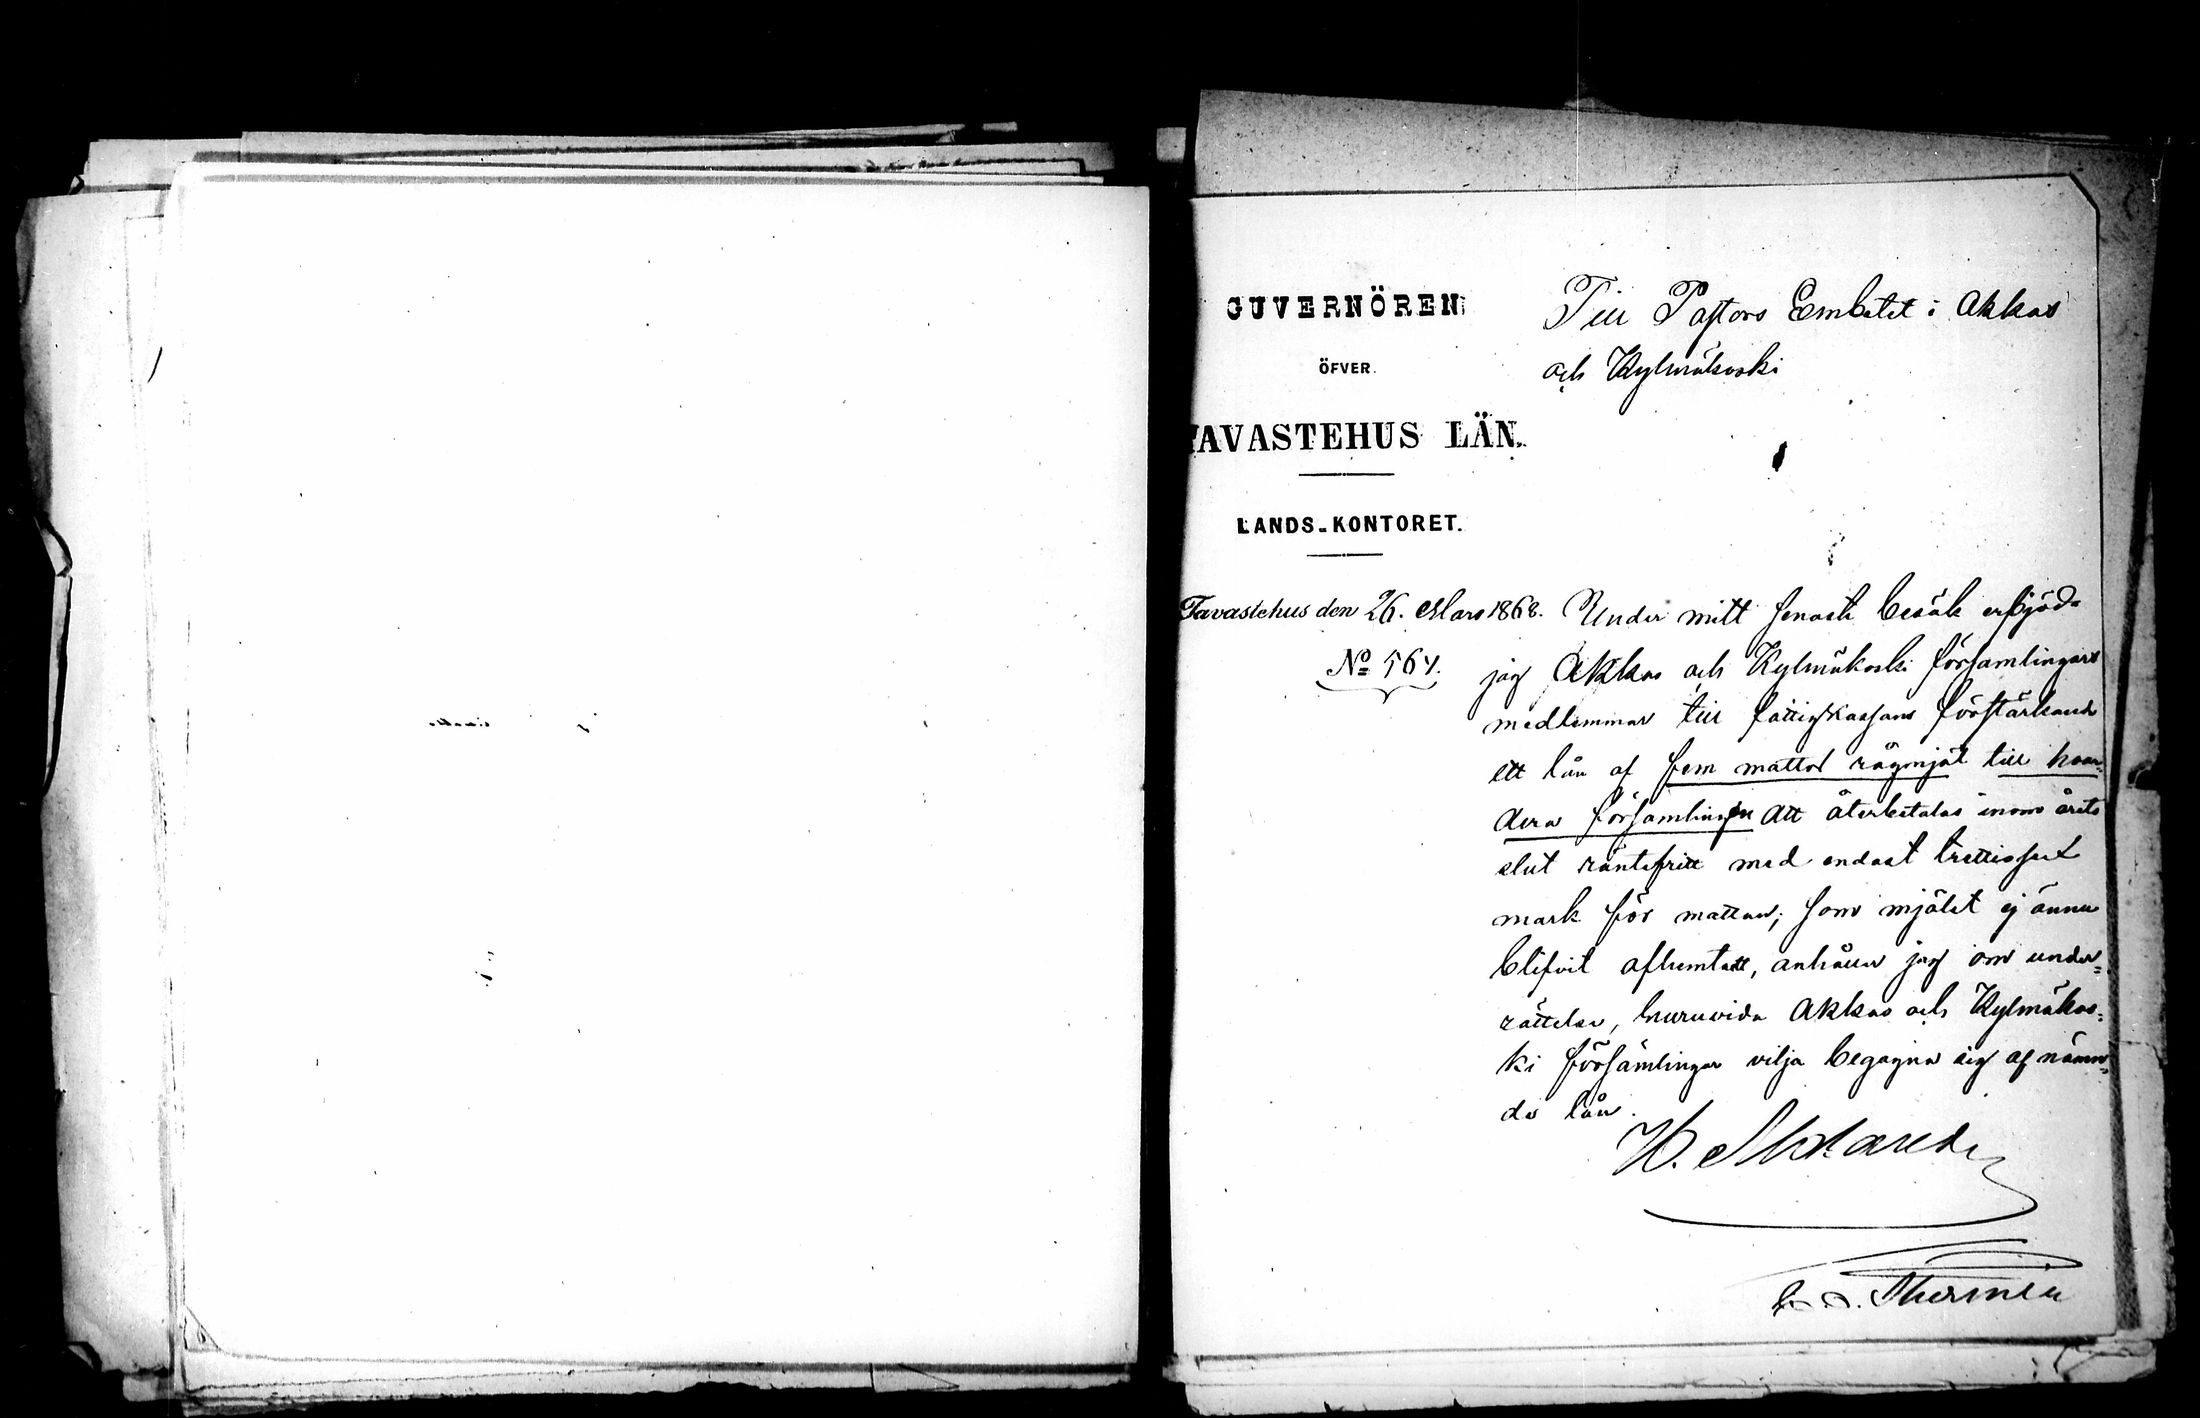 GUVERNÖREN
ÖFVER.
TAVASTEHUS LÄN.
LANDS-KONTORET.
Tavastehus den 26. Mars 1868.
No 564.
Till Pastors Embetet i Akkas
och Kylmäkoski
Under mitt senaste besök erbjöd
jag Akkas och Kylmäkoski församlingars
medlemmar till fattigkassans förstärkande
ett lån af fem mattor rågmjöl till hvar-
dera församlingen att återbetalas inom årets
slut räntefritt med endast trettiosex
mark för mattan; som mjölet ej ännu
blifvit afhemtadt, anhåller jag om under-
rättelse, huruvida Akkas och Kylmäkos-
ki församlingar vilja begagna sig af nämn-
de lån.